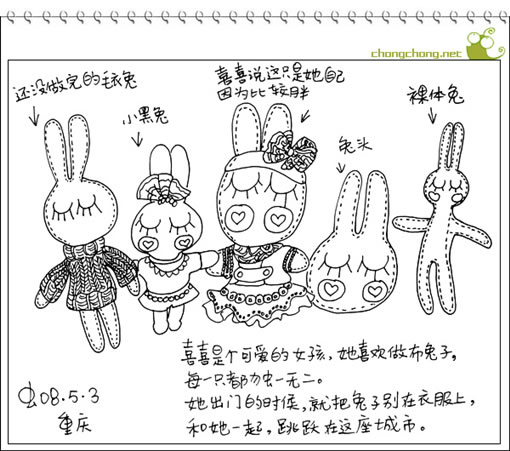 chongchong.net
还没做完的毛衣兔
小黑兔
喜喜说这只是她自己
因为比较胖
兔头
裸体兔
喜喜是个可爱的女孩，她喜欢做布兔子，
每一只都独一无二。
她出门的时候，就把兔子别在衣服上，
和她一起，跳跃在这座城市。
08.5.3
重庆